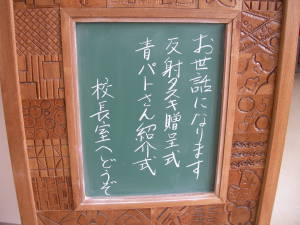 お世話になります
反射タスキ贈呈式
青パトさん紹介式
校長室へどうぞ